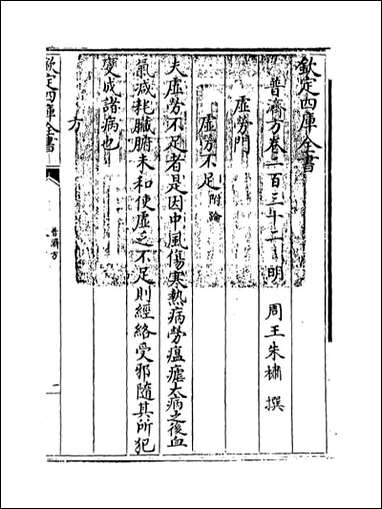 欽定四庫全書
普濟方卷二百三十二 明 周王朱橚 撰
虚勞門
虚勞不足附論
夫虚勞不足者是因中風傷寒熱病勞瘟瘧大病之後血
氣減耗臟腑未和使虚乏不足則經絡受邪隨其所犯
變成諸病也
方
欽定四庫全書
普濟方
一